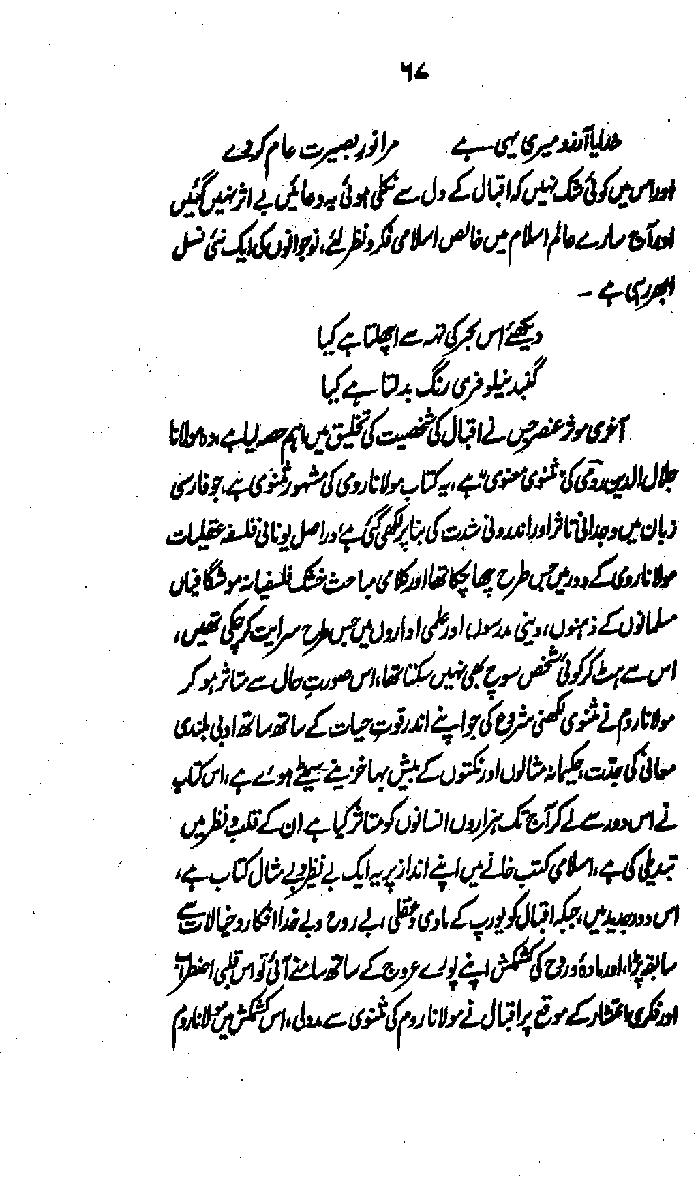 ۶۷
خدایا آرزو میری یہی ہے مرا نور بصیرت عام کر دے
اور اس میں کوئی شک نہیں کہ اقبال کے دل سے نکلی ہوئی یہ دعائیں بے اثر نہیں گئیں
اور آج سارے عالم اسلام میں خالص اسلامی فکر و نظر لئے، نوجوانوں کی ایک نئی نسل
ابھر رہی ہے۔
دیکھئے اس بحر کی تہ سے اچھلتا ہے کیا
گنبد نیلوفری رنگ بدلتا ہے کیا
آخری موثر عنصر جس نے اقبال کی شخصیت کی تخلیق میں اہم حصہ لیا ہے، وہ مولانا
جلال الدین رومی کی "مثنوی معنوی" ہے، یہ کتاب مولانا رومی کی مشہور مثنوی ہے، جو فارسی
زبان میں وجدانی تاثر اور اندرونی شدت کی بنا پر لکھی گئی ہے، دراصل یونانی فلسفہ عقلیات
مولانا رومی کے دور میں جس طرح چھا چکا تھا اور کلامی مباحث خشک فلسفیانہ موشگافیاں
مسلمانوں کے ذہنوں، دینی مدرسوں اور علمی اداروں میں جس طرح سرایت کر چکی تھیں،
اس سے ہٹ کر کوئی شخص سوچ بھی نہیں سکتا تھا، اس صورت حال سے متاثر ہو کر
مولانا روم نے مثنوی لکھنی شروع کی جو اپنے اندر قوت حیات کے ساتھ ساتھ ادبی بلندی
معانی کی جدت، حکیمانہ مثالوں اور نکتوں کے بیش بہا خزینے سمیٹے ہوئے ہے، اس کتاب
نے اس دور سے لے کر آج تک ہزاروں انسانوں کو متاثر کیا ہے ان کے قلب و نظر میں
تبدیلی کی ہے، اسلامی کتب خانے میں اپنے انداز پر یہ ایک بے نظیر و بے مثال کتاب ہے،
اس دور جدید میں، جبکہ اقبال کو یورپ کے مادی و عقلی، بے روح و بے خدا افکار و خیالات سے
سابقہ پڑا، اور مادہ و روح کی کشمکش اپنے پورے عروج کے ساتھ سامنے آئی تو اس قلبی اضطراب
اور فکری انتشار کے موقع پر اقبال نے مولانا روم کی مثنوی سے مدد لی، اس کشمکش میں مولانا روم